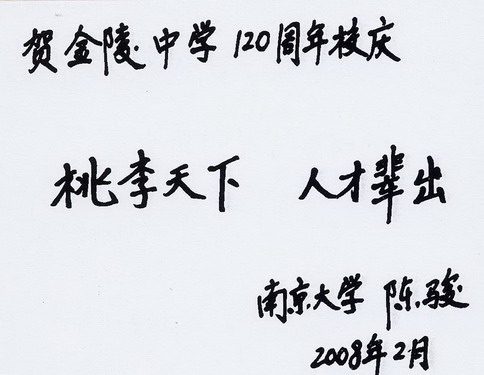 贺金陵中学120周年校庆
桃李天下 人才辈出
南京大学 陈骏
2008年2月